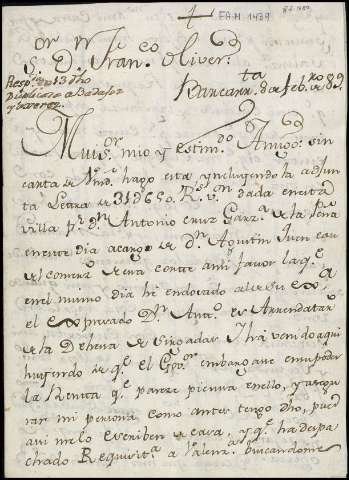 FA.M 1439
S.or D.n Fran.co Oliver.
Resp.da en 13 dho
Duplicada a Badajoz
y
Barcarr.ta 8 de feb.ro de 89.
Mui s.or mio y estim.do Amigo: sin
carta de Vmd. hago esta yncluyendo la adjunta
Letra de 31D650 R.s v.on dada en esta
villa p.r d.n Antonio Cruz Garz.a de la Peña
en este dia a cargo de d.n Agustin Juen
de comerz.o de esa Corte a mi favor la q.e
en el mismo dia he endosado
el expresado D.n Ant.o es Arrendatar.o
de la Dehesa de y há venido aqui
huiendo de q.e el Gov.or embargase en su poder
la Renta q.e pareze piensa en ello, y asegu
rar mi persona como antes tengo dho, pues
asi me lo escriben de casa, y q.e ha despa
chado Requisit.a a Valenz.a buscandome